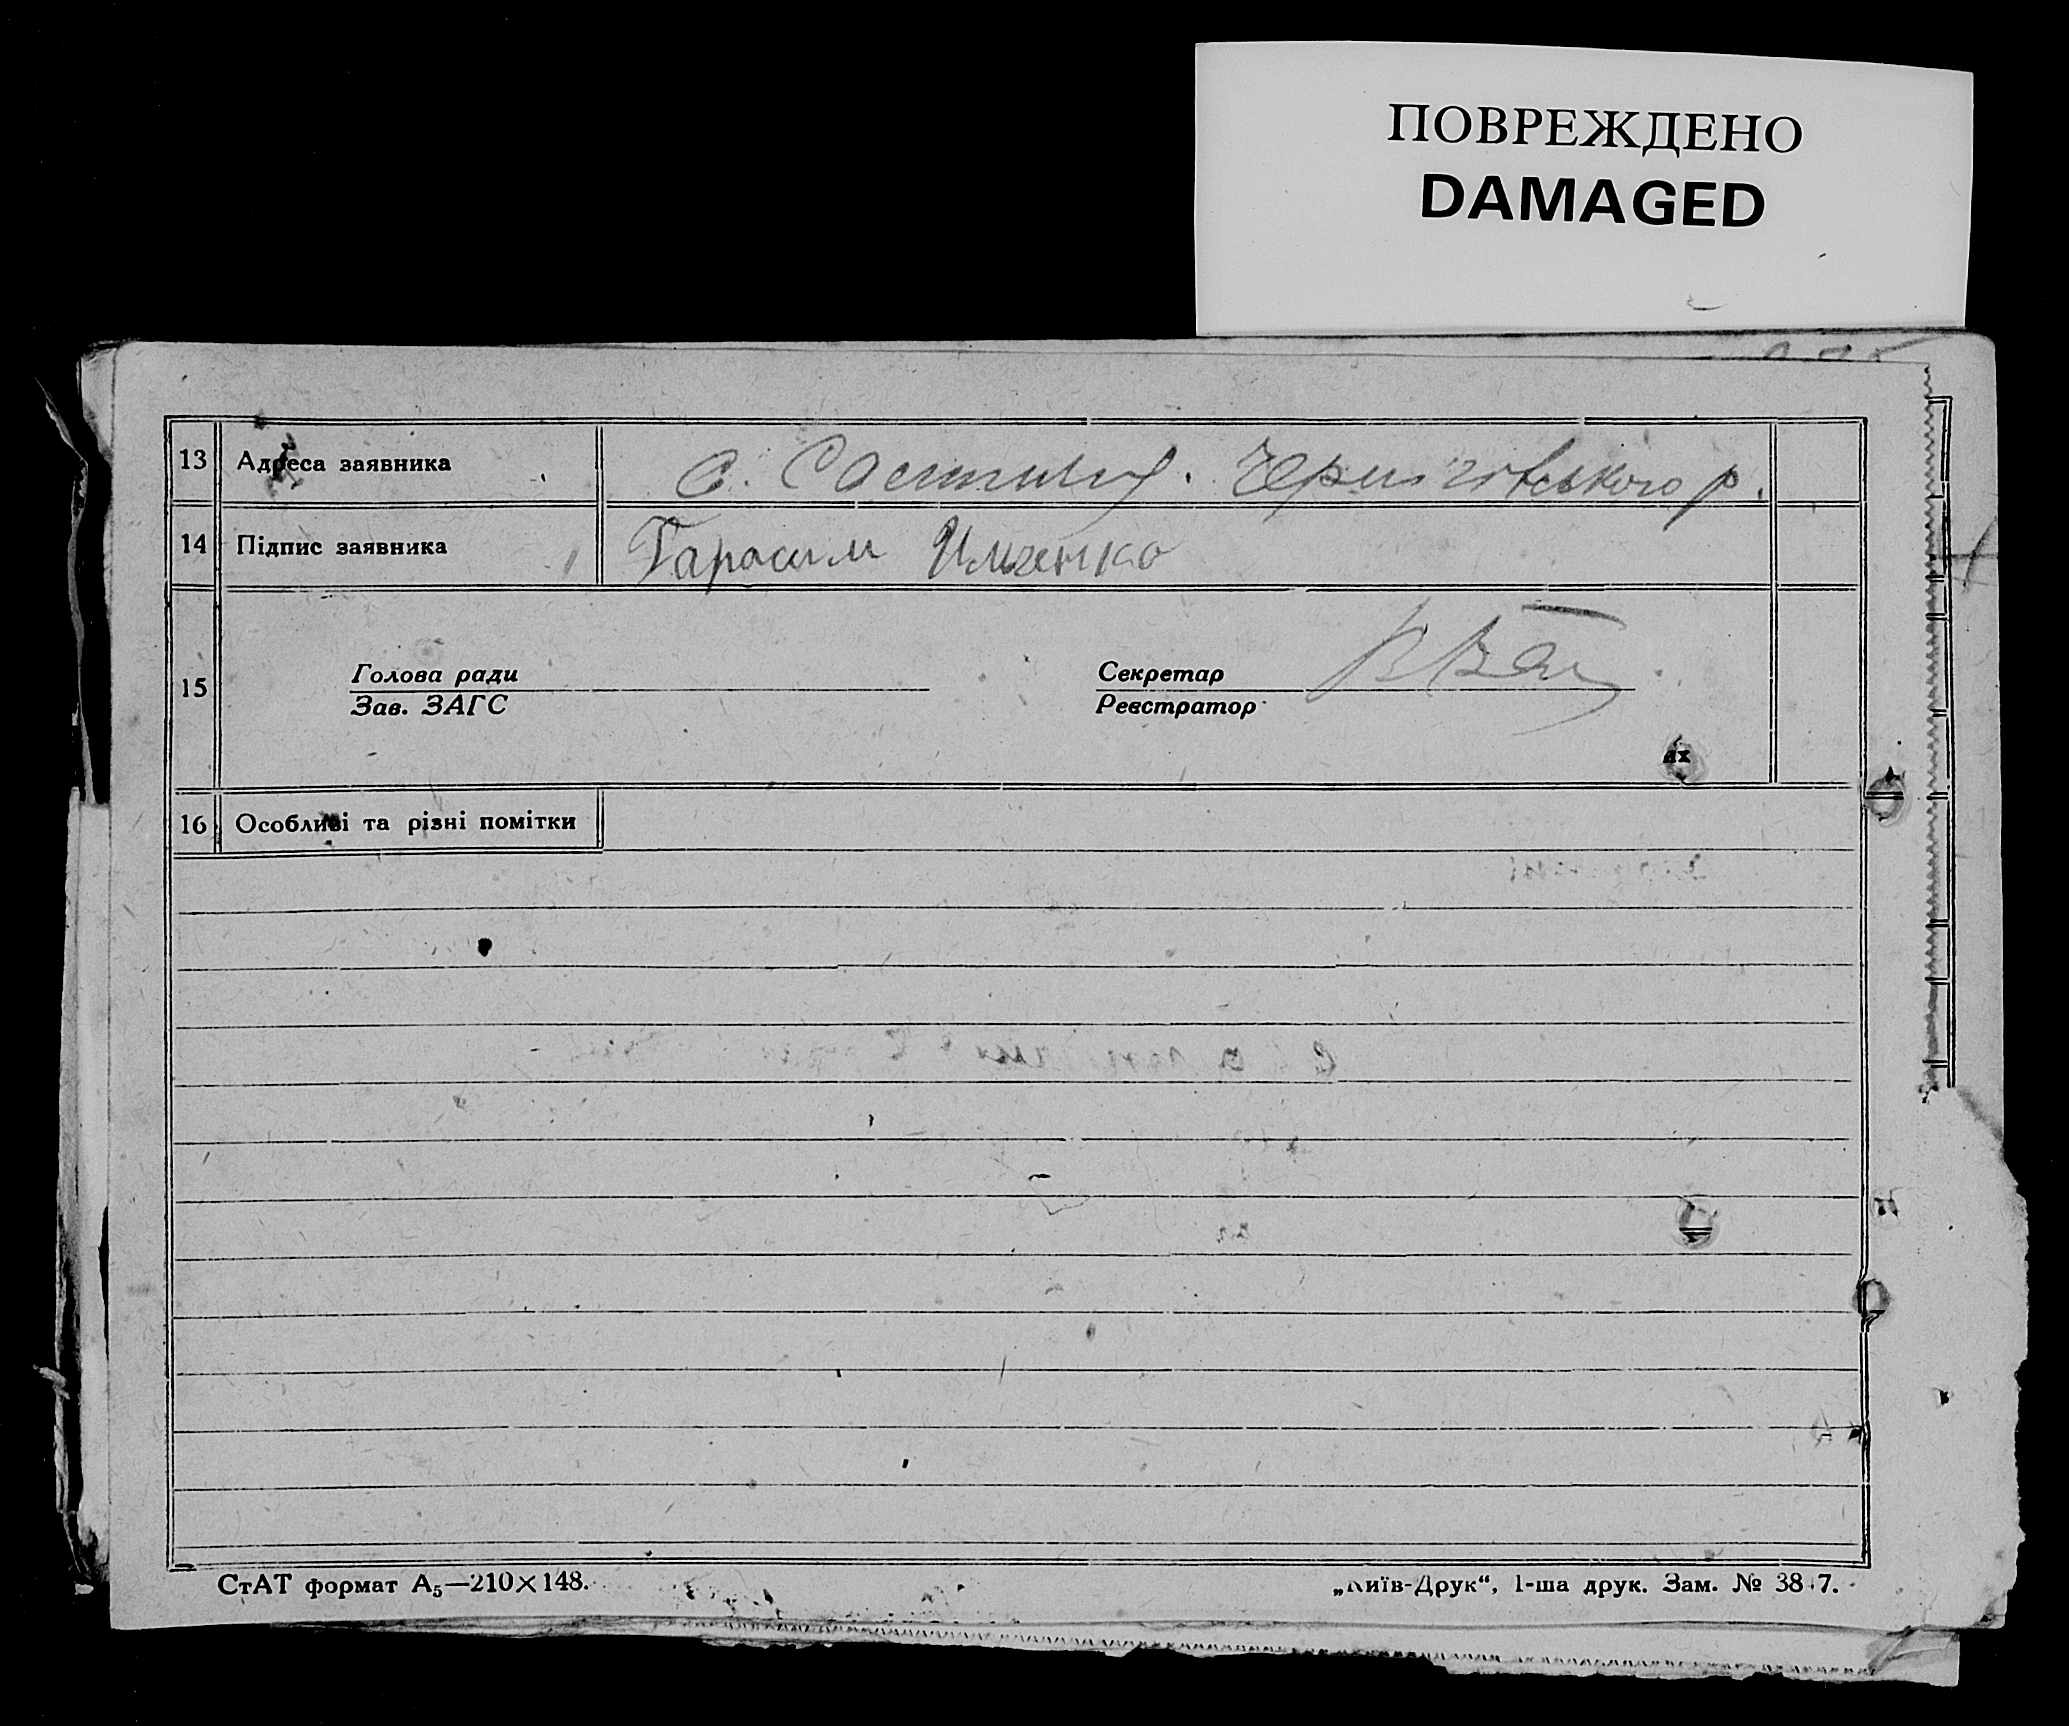 ПОВРЕЖДЕНО
DAMAGED
13 Адреса заявника с. Чернігівського р.
14 Підпис заявника Гарасим Имченко
15 Голова ради Секретар
Зав. ЗАГС Реєстратор
их
16 Особливі та різні помітки
СтАТ формат А₅—210×148. „Київ-Друк“, 1-ша друк. Зам. №